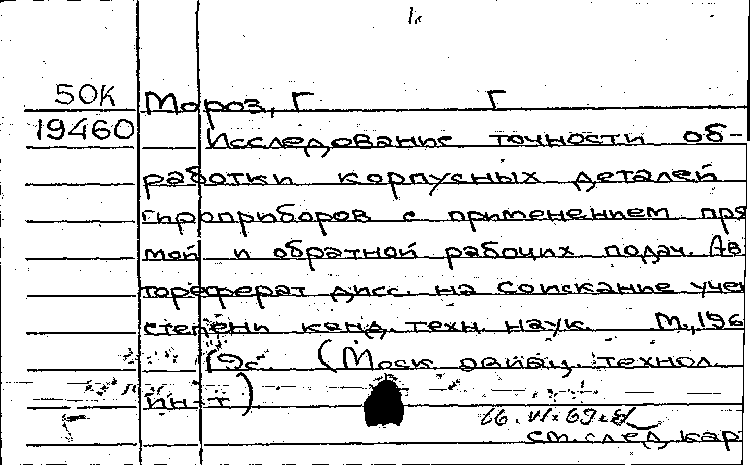 50К Мороз, Г Г
19460 Исследование точности об-
работки корпусных деталей
гироприборов с применением пря
мой и обратной рабочих подач. Ав
тореферат дисс. на соискание учен
степени канд. техн. наук. М., 196
19с. (Моск. авиац. технол.
ин-т)
см. след кар